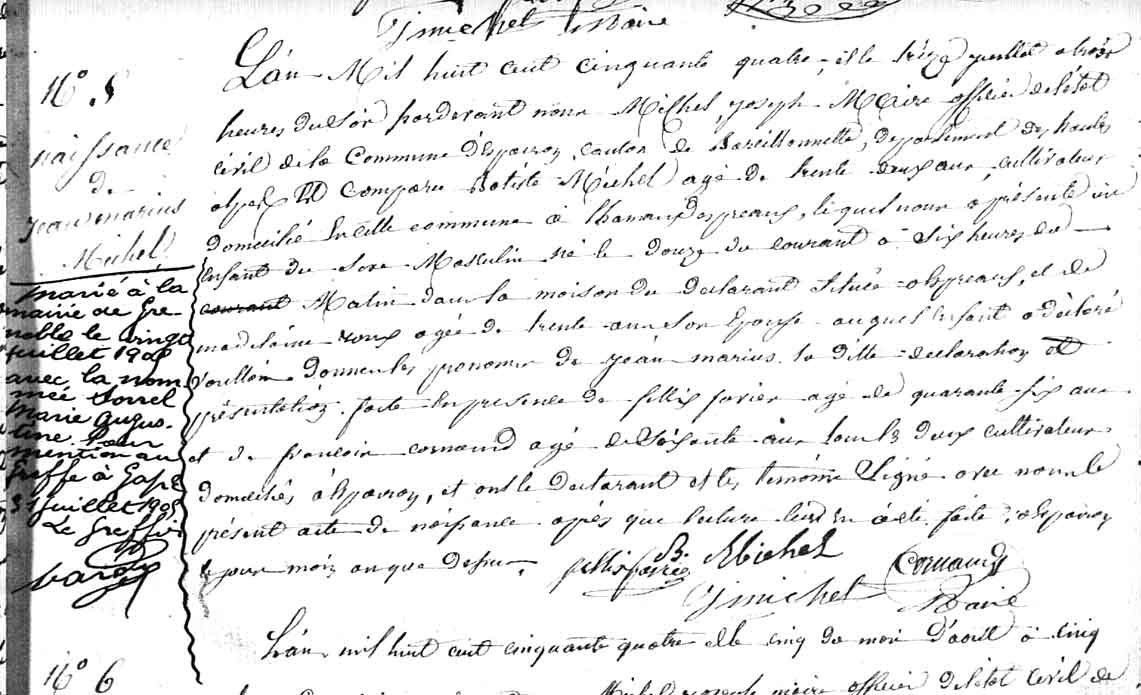 Jmichel Maire
N° 5
naissance
de
Jean marius
Michel
marié à la
mairie de Gre-
noble le vingt
juillet 190
avec la nom-
mée Sorrel
Marie Augus-
tine. Pour
mention au
Greffe à Gap le
31 juillet 190
Le Greffier
L'án Mil huit cent cinquante quatre, et le treize juillet a trois
heures du soir pardevant nous Michel, joseph Maire officier de létat
civil de la Commune d'Espavroy canton de Barcillonnette, departiment des hautes
alpes Est Comparu Batiste Michel agé de trente deux ans, cultivateur
domicilié En cette commune à lhameau despreaux, lequel nous a présenté un
Enfant du sexe Masculin né le douze du courant à Six heures du
courant Matin dans la maison du declarant située a Espreaux, et de
madelaine roux agée de trente ans son Epouse auquel Enfant a déclaré
vouloir donner les prenoms de jeán marius. la ditte declaration et
présentation faite En presence de fellix favier agé de quarante six ans
et de francoix cornand agé de soixante ans tous les deux cultivateurs
domiciliés à Espavroy, et ont le declarant et les temoins Signé avec nous le
présent acte de naissance aprés que lecture leur En à été faite, a Espavroy
le jour mois an que dessus. fellix favier B. Michel Cornand
Jmichel Maire
N° 6
L'án mil huit cent cinquante quatre et le cinq du mois d'aout à cinq
Michel joseph maire officier de létat civil de